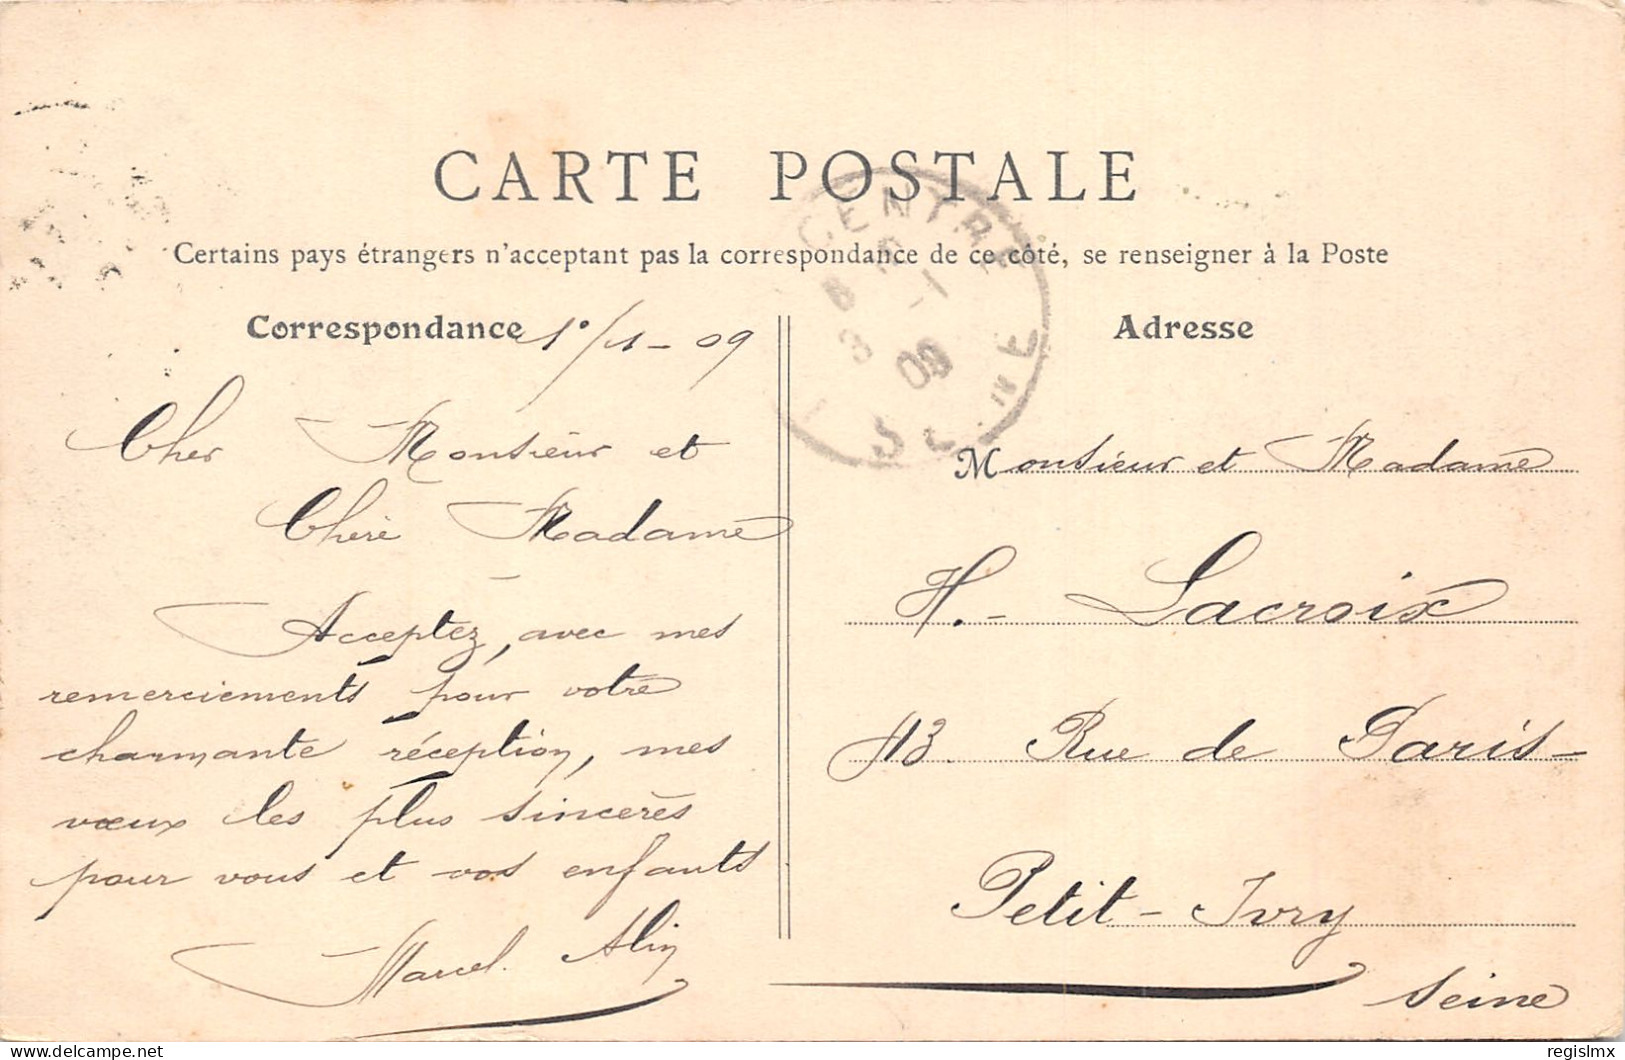 CARTE POSTALE
Certains pays étrangers n'acceptant pas la correspondance de ce côté, se renseigner à la Poste
Correspondance 1°/1-09
Cher Monsieur et
Chère Madame
Acceptez, avec mes
remerciements pour votre
charmante réception, mes
vœux les plus sincères
pour vous et vos enfants
Marcel
Adresse
Monsieur et Madame
H.- Lacroix
113. Rue de Paris-
Petit-Ivry
Seine
CENTRE
8
3 -1
09
SEINE
delcampe.net
regislmx